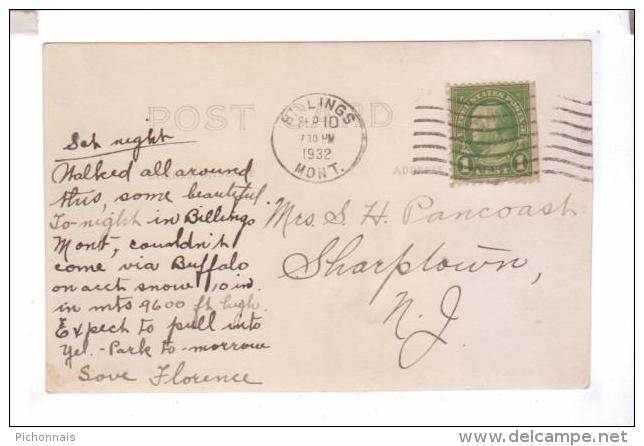 POST CARD
BILLINGS
SEP 10
7 30 PM
1932
MONT.
UNITED STATES POSTAGE
1 CENT 1
ADDRESS
Sat night
Walked all around
this, some beautiful.
To-night in Billings
Mont, couldn't
come via Buffalo
on acct snow 10 in.
in mts 9600 ft high.
Expect to pull into
Yel.-Park to-morrow
Love Florence
Mrs. S. H. Pancoast
Sharptown,
N. J.
Pichonnais
www.delcampe.net